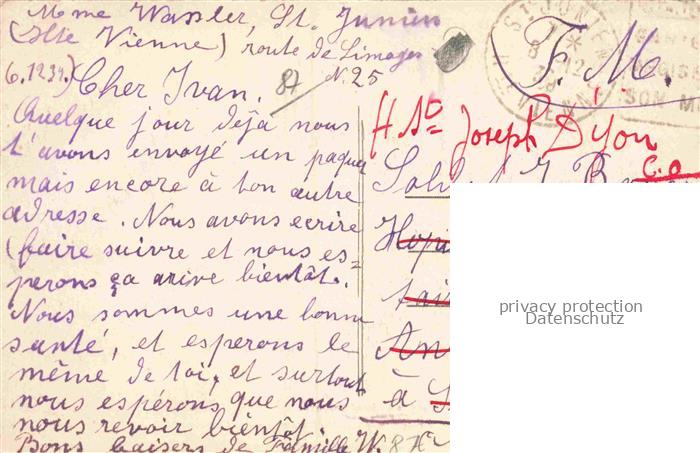 Mme Wassler, St. Junien
(Hte Vienne) route de Limoges
N. 25
6.12.39.) Cher Ivan.
87
Quelque jour dejà nous
t'avons envoyé un paquet
mais encore à ton autre
adresse. Nous avons ecrire
(faire suivre et nous es=
perons ça arive bientôt.
Nous sommes une bonne
santé, et esperons le
même de toi, et surtout
nous espérons que nous
nous revoir bientôt.
Bons baisers de Famille W.
F.M.
St JUNIEN
VIENNE
SON
Hop Joseph Dijon
C.O
à
privacy protection
Datenschutz